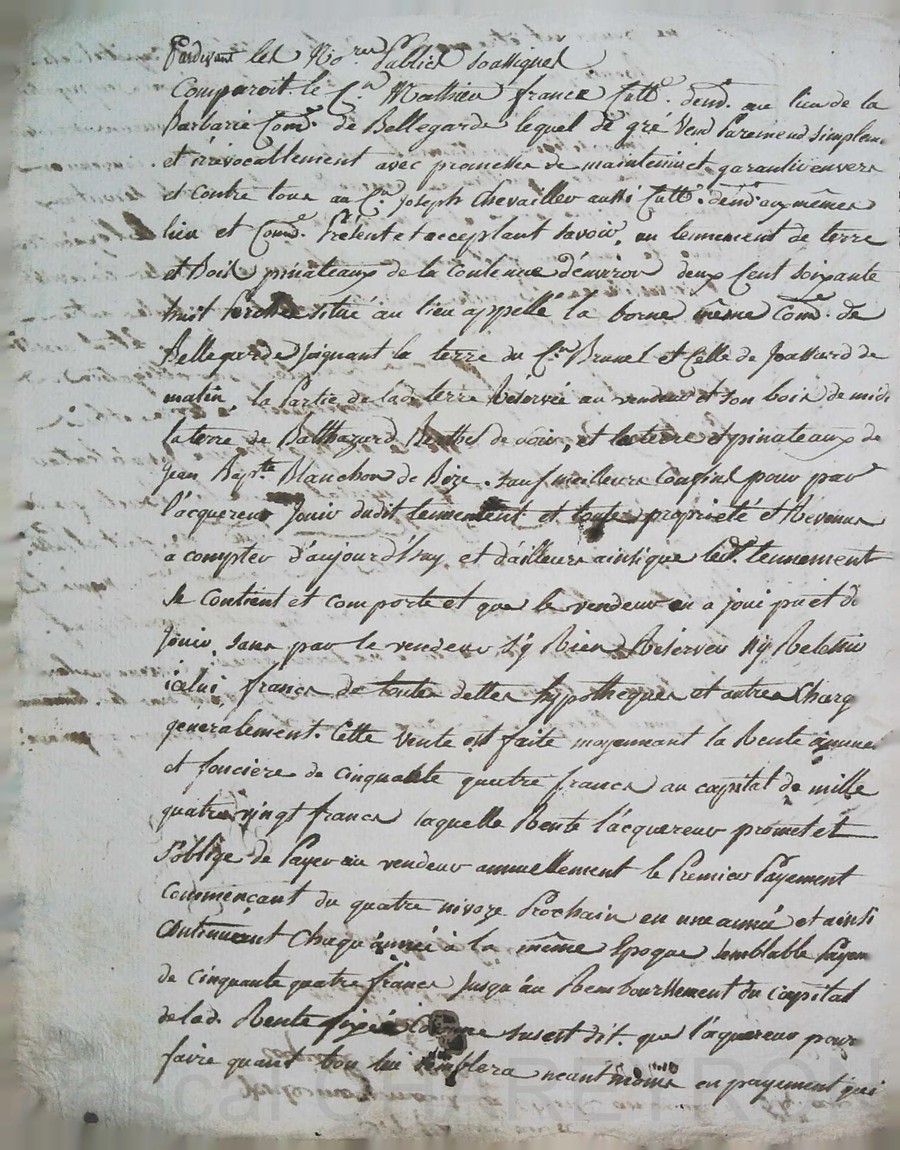 Pardevant les No.res Publics soussignés
Comparoit le C.n Mathieu france Cult.r dem.t au lieu de la
Barbarie Com.e de Bellegarde lequel de gré Vend Purement simplem.
et irrévocablement avec promesse de maintenir et garantir envers
et contre tous au C.n Joseph Chevaillier aussi Cult.r dem.t aux mêmes
lieu et Com.e Présent et acceptant savoir, un tennement de terre
et bois pinateaux de la contenue d'environ deux Cent soixante
huit Perches situé au lieu appellé la borne même Com.e de
Bellegarde Joignant la terre du C.n Brunel et Celle de Joassard de
matin, la Partie de lad. terre Réservée au vendeur et son bois de midi
la terre de Balthazard de soir, et la terre et pinateaux de
Jean Bap.te Blanchon de Bize. sauf meilleurs Confins pour par
l'acquereur Jouir dudit tennement en toute propriété et Revenus
à compter d'aujourd'huy et d'ailleurs ainsi que led.t tennement
se Contient et comporte et que le vendeur en a joui pu et dû
Jouir, sans par le vendeur s'y Rien Réserver ny Relaissé
icelui francs de toutes dettes hypotheques et autres Charg
generalement. Cette Vente est faite moyennant la Rente annuelle
et foncière de cinquante quatre francs au capital de mille
quatre vingt francs laquelle Rente l'acquereur promet et
s'oblige de Payer au vendeur annuellement le Premier Payement
Commencant du quatre nivoze Prochain en une année et ainsi
Continuant Chaqu'année à la même Epoque semblable Payem
de cinquante quatre francs Jusqu'au Remboursement du capital
de lad. Rente fixée comme susest dit. que l'aquereur pourra
faire quant bon lui semblera neantmoins en payement qui
CHAREYRON